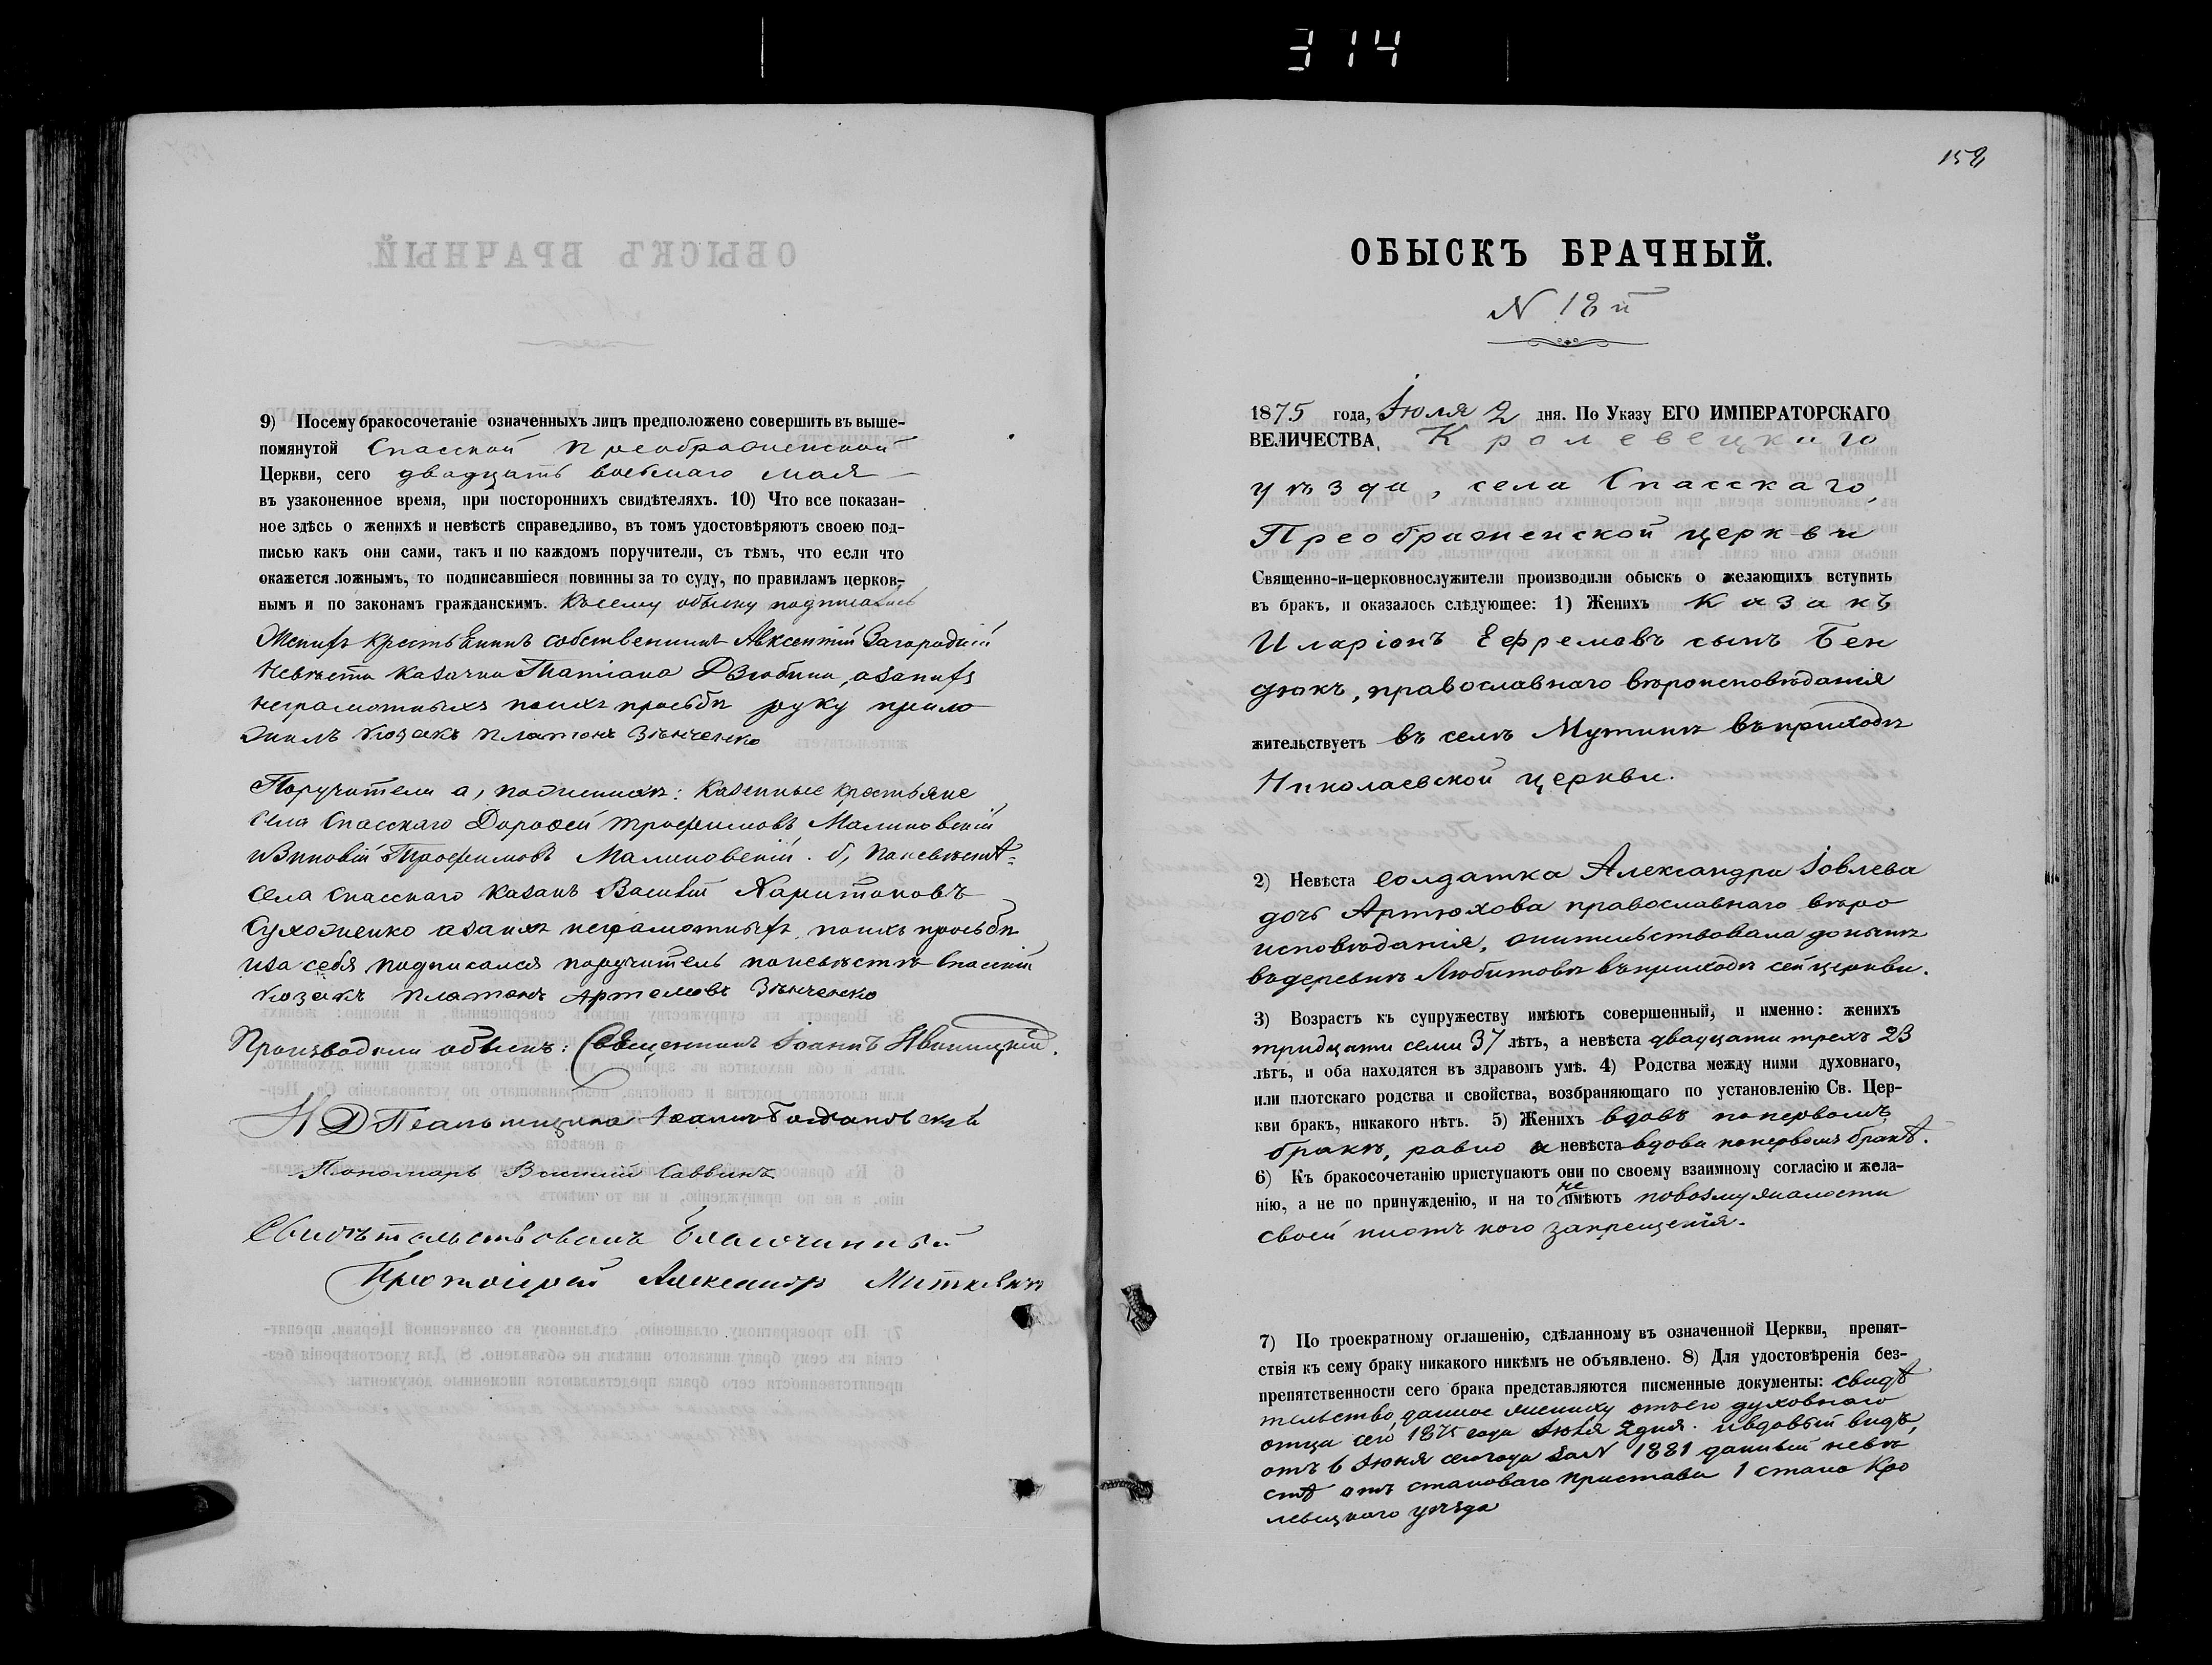 314
9) Посему бракосочетаніе означенныхъ лицъ предположено совершить въ выше-
помянутой Спасской Преображенской
Церкви, сего двадцать восьмаго мая
въ узаконенное время, при постороннихъ свидѣтеляхъ. 10) Что все показан-
ное здѣсь о женихѣ и невѣстѣ справедливо, въ томъ удостовѣряютъ своею под-
писью какъ они сами, такъ и по каждомъ поручители, съ тѣмъ, что если что
окажется ложнымъ, то подписавшіеся повинны за то суду, по правиламъ церков-
нымъ и по законамъ гражданскимъ. Ксему обыску подписались
Женихъ крестьянинъ собственникъ Авксентій Загородній
Невѣста казачка Татіана Дзюбина, азанихъ
неграмотныхъ поихъ прозьбѣ руку прило
жилъ козакъ Платонъ Зѣнченко
Поручители а, поженихѣ: казенные крестьяне
села Спасскаго Дорофей Трофимовъ Малиновскій
иЗиновій Трофимовъ Малиновскій. б, поневѣстѣ=
села Спасскаго казакъ Василій Харитоновъ
Сухоженко азаихъ неграмотныхъ, поихъ прозьбѣ
иза себя подписался поручитель поневѣстѣ Спасскій
козакъ Платонъ Артемовъ Зѣнченко
Производили обыскъ: Священникъ Іоаннъ
И Д Псаломщика Іоаннъ Богдановскій
Пономарь Василій Саввичъ
Свидѣтельствовалъ Благочинный
Протоіерей Александръ Миткевичъ
158
ОБЫСКЪ БРАЧНЫЙ.
N 18й
1875 года, Іюля 2 дня. По Указу ЕГО ИМПЕРАТОРСКАГО
ВЕЛИЧЕСТВА, Кролевецкаго
уѣзда, села Спасскаго,
Преображенской церкви
Священно-и-церковнослужители производили обыскъ о желающихъ вступить
въ бракъ, и оказалось слѣдующее: 1) Женихъ Казакъ
Иларіонъ Ефремовъ сынъ Бен
дюкъ, православнаго вѣроисповѣданія
жительствуетъ въ селѣ Мутинѣ въприходѣ
Николаевской церкви.
2) Невѣста солдатка Александра Іовлева
дочь Артюхова православнаго вѣро
исповѣданія, жительствовала донынѣ
въдеревнѣ Любитовѣ въприходѣ сей церкви.
3) Возрастъ къ супружеству имѣютъ совершенный, и именно: женихъ
тридцати семи 37 лѣтъ, а невѣста двадцати трехъ 23
лѣтъ, и оба находятся въ здравомъ умѣ. 4) Родства между ними духовнаго,
или плотскаго родства и свойства, возбраняющаго по установленію Св. Цер-
кви бракъ, никакого нѣтъ. 5) Женихъ вдовъ попервомъ
бракѣ, равно а невѣста вдова попервомъ бракѣ.
6) Къ бракосочетанію приступаютъ они по своему взаимному согласію и жела-
нію, а не по принужденію, и на то не имѣютъ повозмужалости
своей ниотъ кого запрещенія.
7) По троекратному оглашенію, сдѣланному въ означенной Церкви, препят-
ствія къ сему браку никакого никѣмъ не объявлено. 8) Для удостовѣренія без-
препятственности сего брака представляются писменные документы: свидѣ
тельство, данное жениху отъего духовнаго
отца сего 1875 года Іюля 2 дня. ивдовый видъ,
отъ 6 Іюня сего года заN 1881 данный невѣ
стѣ отъ становаго пристава 1 стана Кро
левецкаго уѣзда